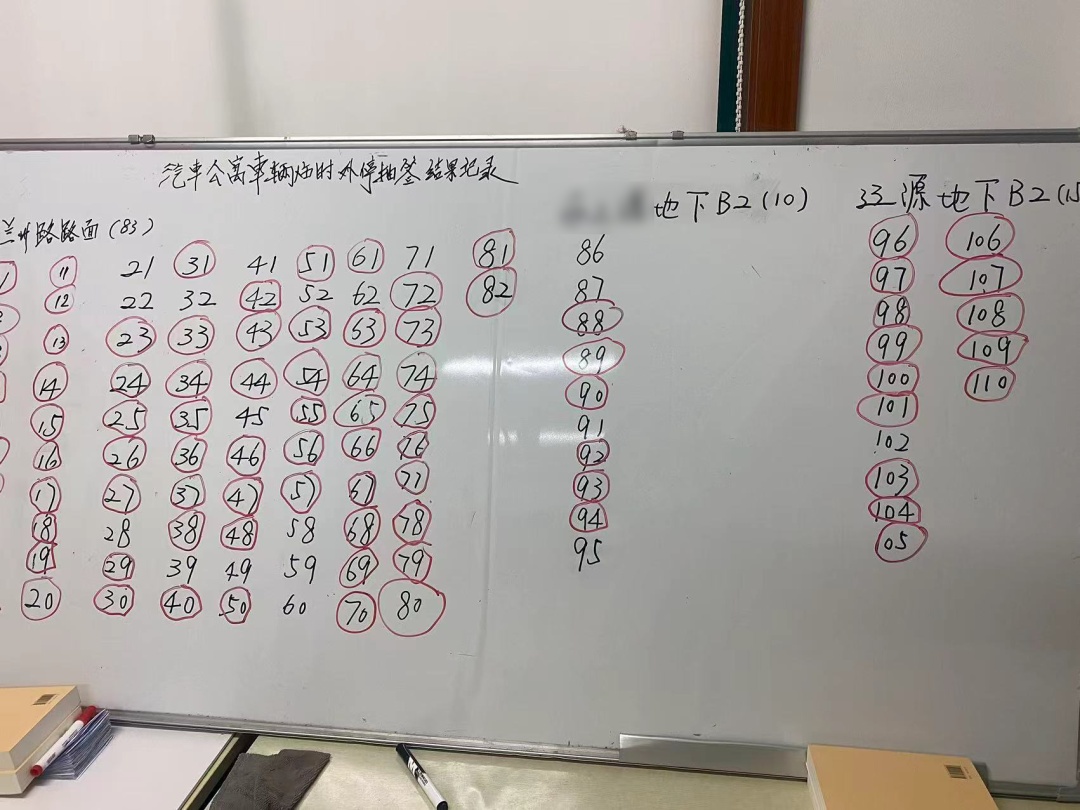 汽车公离车辆临时外停抽签结果记录
兰州路路面(83)
地下B2(10)
源地下B2(15
11 21 31 41 51 61 71 81
12 22 32 42 52 62 72 82
13 23 33 43 53 63 73
14 24 34 44 54 64 74
15 25 35 45 55 65 75
16 26 36 46 56 66 76
17 27 37 47 57 67 77
18 28 38 48 58 68 78
19 29 39 49 59 69 79
20 30 40 50 60 70 80
86
87
88
89
90
91
92
93
94
95
96 106
97 107
98 108
99 109
100 110
101
102
103
104
05